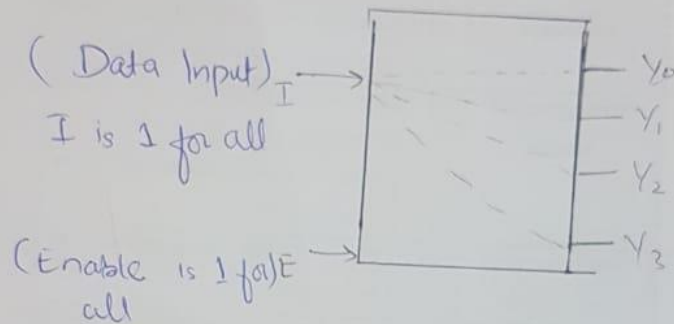 (Data Input) I
I is 1 for all
(Enable is 1 for) E
all
Y0
Y1
Y2
Y3